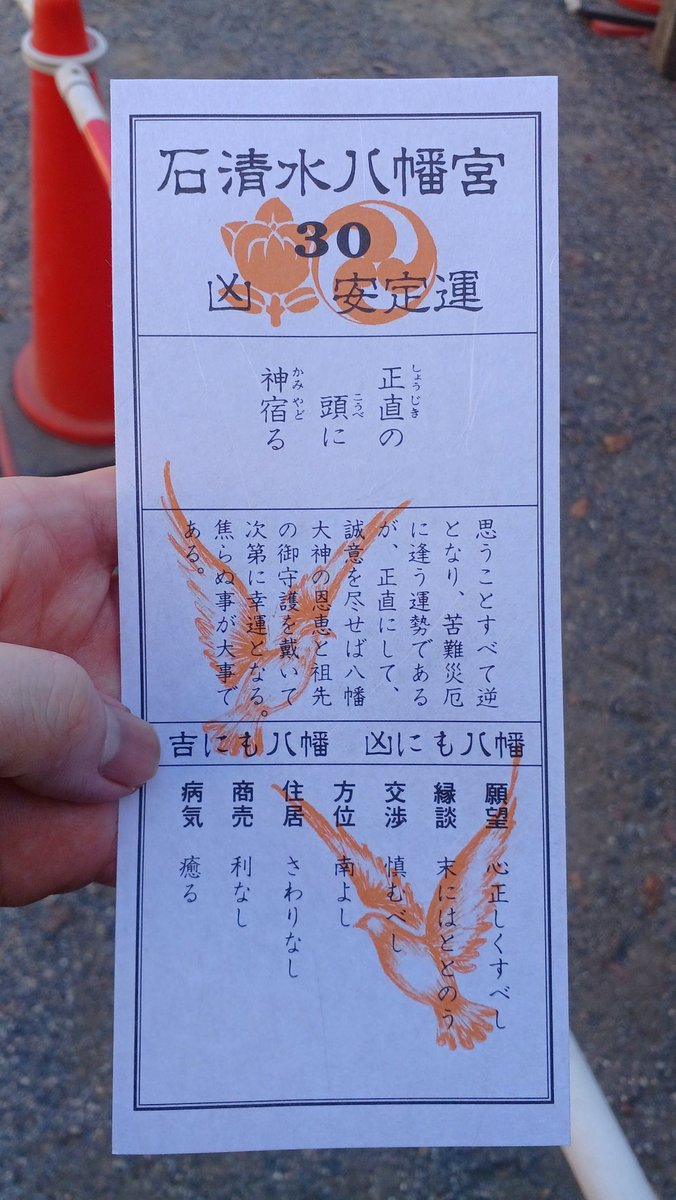 石清水八幡宮
30
凶 安定運
正直の
頭に
神宿る
しょうじき
こうべ
かみやど
思うことすべて逆
となり、苦難災厄
に逢う運勢である
が、正直にして、
誠意を尽せば八幡
大神の恩恵と祖先
の御守護を戴いて
次第に幸運となる。
焦らぬ事が大事で
ある。
吉にも八幡 凶にも八幡
願望 心正しくすべし
縁談 末にはととのう
交渉 慎むべし
方位 南よし
住居 さわりなし
商売 利なし
病気 癒る